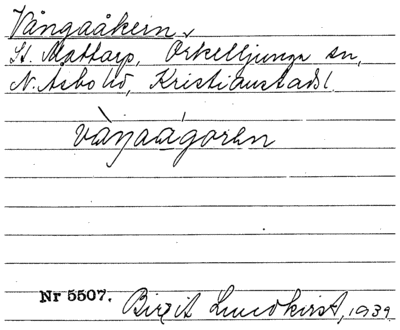 Vångaåkern
St. Mattarp, Örkelljunga sn,
N. Åsbo hd, Kristianstads l.
vàŋaágoren
Nr 5507.
Birgit Lundkvist, 1939